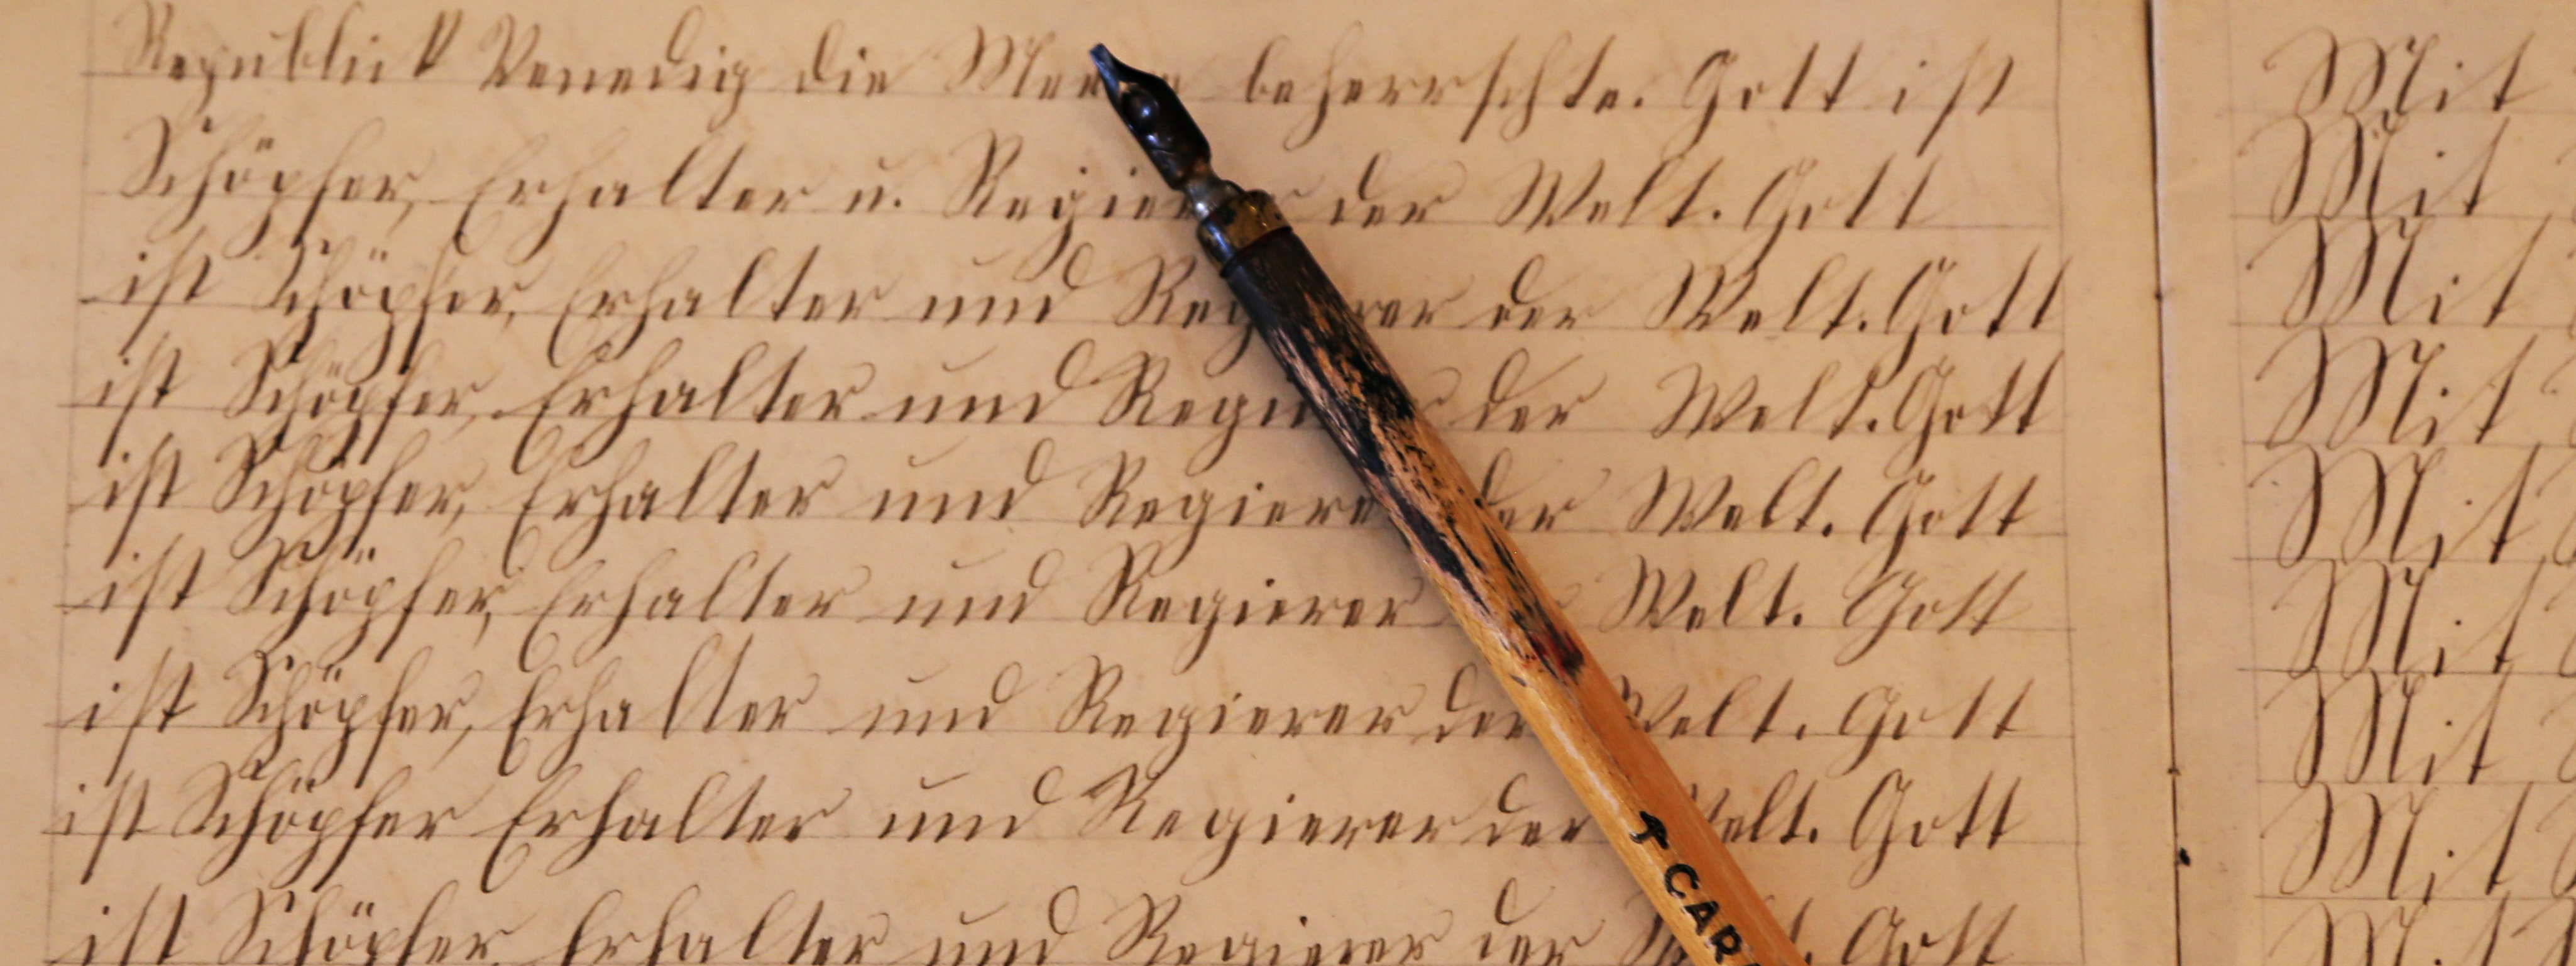 Republick Venedig die Meere beherrschte. Gott ist
Schöpfer, Erhalter u. Regierer der Welt. Gott
ist Schöpfer, Erhalter und Regierer der Welt. Gott
ist Schöpfer, Erhalter und Regierer der Welt. Gott
ist Schöpfer, Erhalter und Regierer der Welt. Gott
ist Schöpfer, Erhalter und Regierer Welt. Gott
ist Schöpfer, Erhalter und Regierer der Welt. Gott
ist Schöpfer Erhalter und Regierer der Welt. Gott
ist Schöpfer Erhalter und Regierer der Gott
CAR
Mit
Mit
Mit
Mit
Mit
Mit
Mit
Mit
Mit